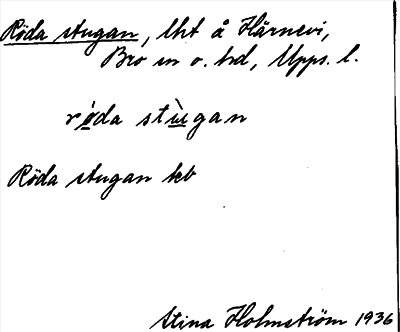 Röda stugan, lht å Härnevi,
Bro sn o. hd, Upps. l.
rö́da stu̇̀gan
Röda stugan kb
Stina Holmström 1936